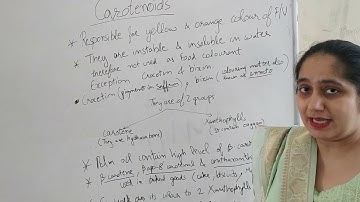 Carotenoids
* Responsible for yellow & orange colour of F/V
* They are instable & insoluble in water
therefore not used as food colourant
Exception Crocetin & bixin
• Crocetin (pigment in saffron) & bixin (colouring matter also known as annatto)
They are of 2 groups
Carotene
Xanthophylls
(They are hydrocarbons)
(It contain oxygen)
* Palm oil contain high level of β-caro
* β carotene, β-apo-8 carotenal &
used in baked goods (cake, biscuits)
its colour to 2 Xanthophylls